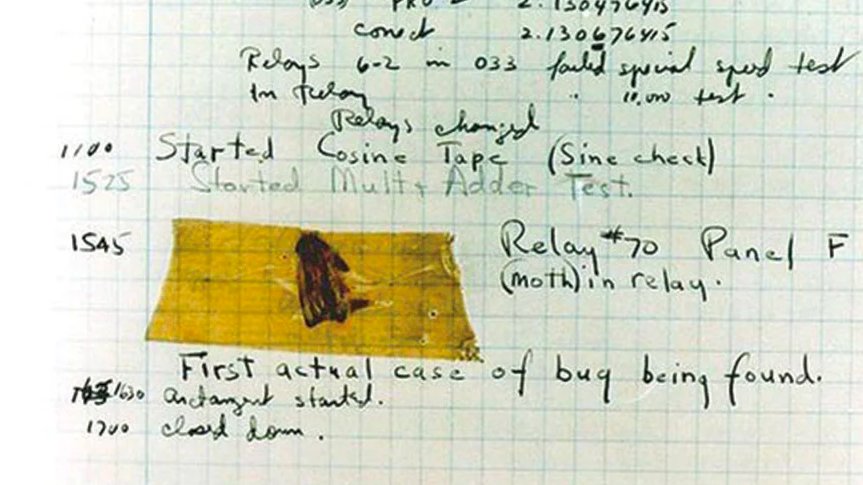 (033) PRO 2 2.130476415
conect 2.130676415
Relays 6-2 in 033 failed special speed test
In relay " 11,000 test .
Relays changed
1100 Started Cosine Tape (Sine check)
1525 Started Mult + Adder Test.
1545 Relay #70 Panel F
(moth) in relay.
First actual case of bug being found.
1630 Arctangent started.
1700 closed down.